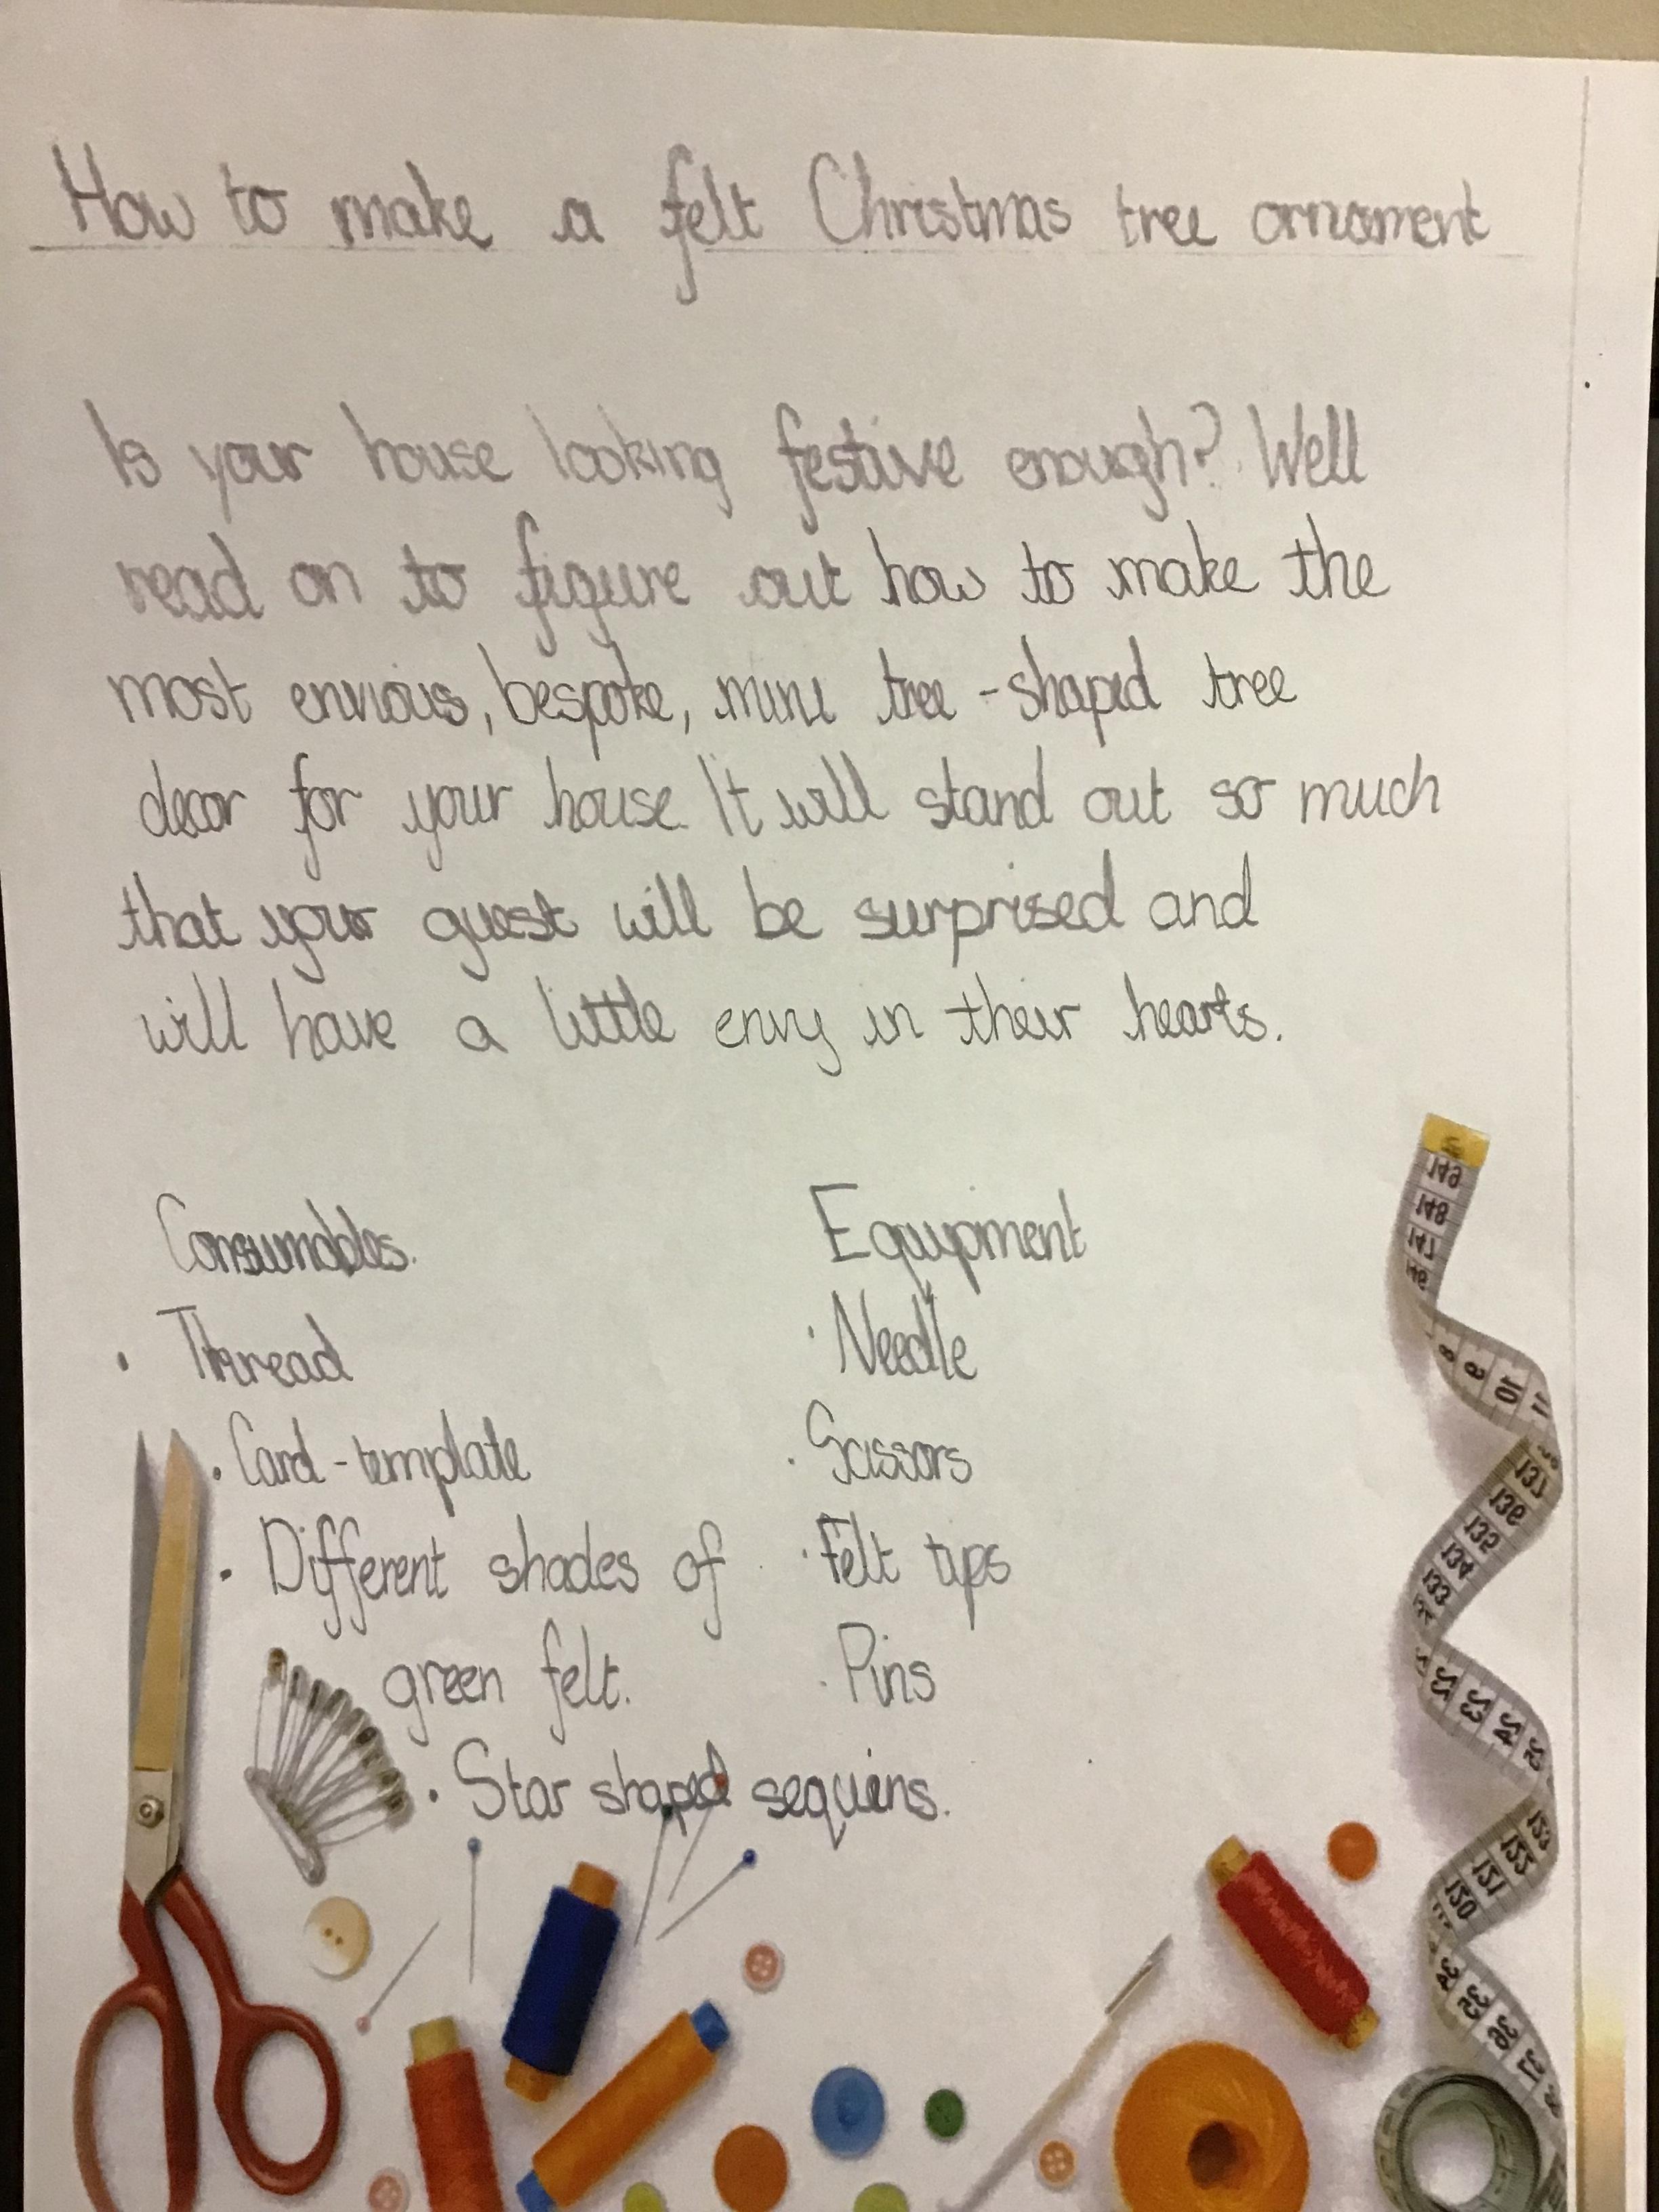 How to make a felt Christmas tree ornament
Is your house looking festive enough? Well
read on to figure out how to make the
most envious, bespoke, mini tree-shaped tree
decor for your house. It will stand out so much
that your guest will be surprised and
will have a little envy in their hearts.
Consumables.
• Thread
• Card-template
• Different shades of
green felt.
• Star shaped sequins.
Equipment
• Needle
• Scissors
• Felt tips
• Pins
149
148
147
46
8
9
10
11
137
136
135
134
133
22
23
24
25
123
122
121
120
34
35
36
37